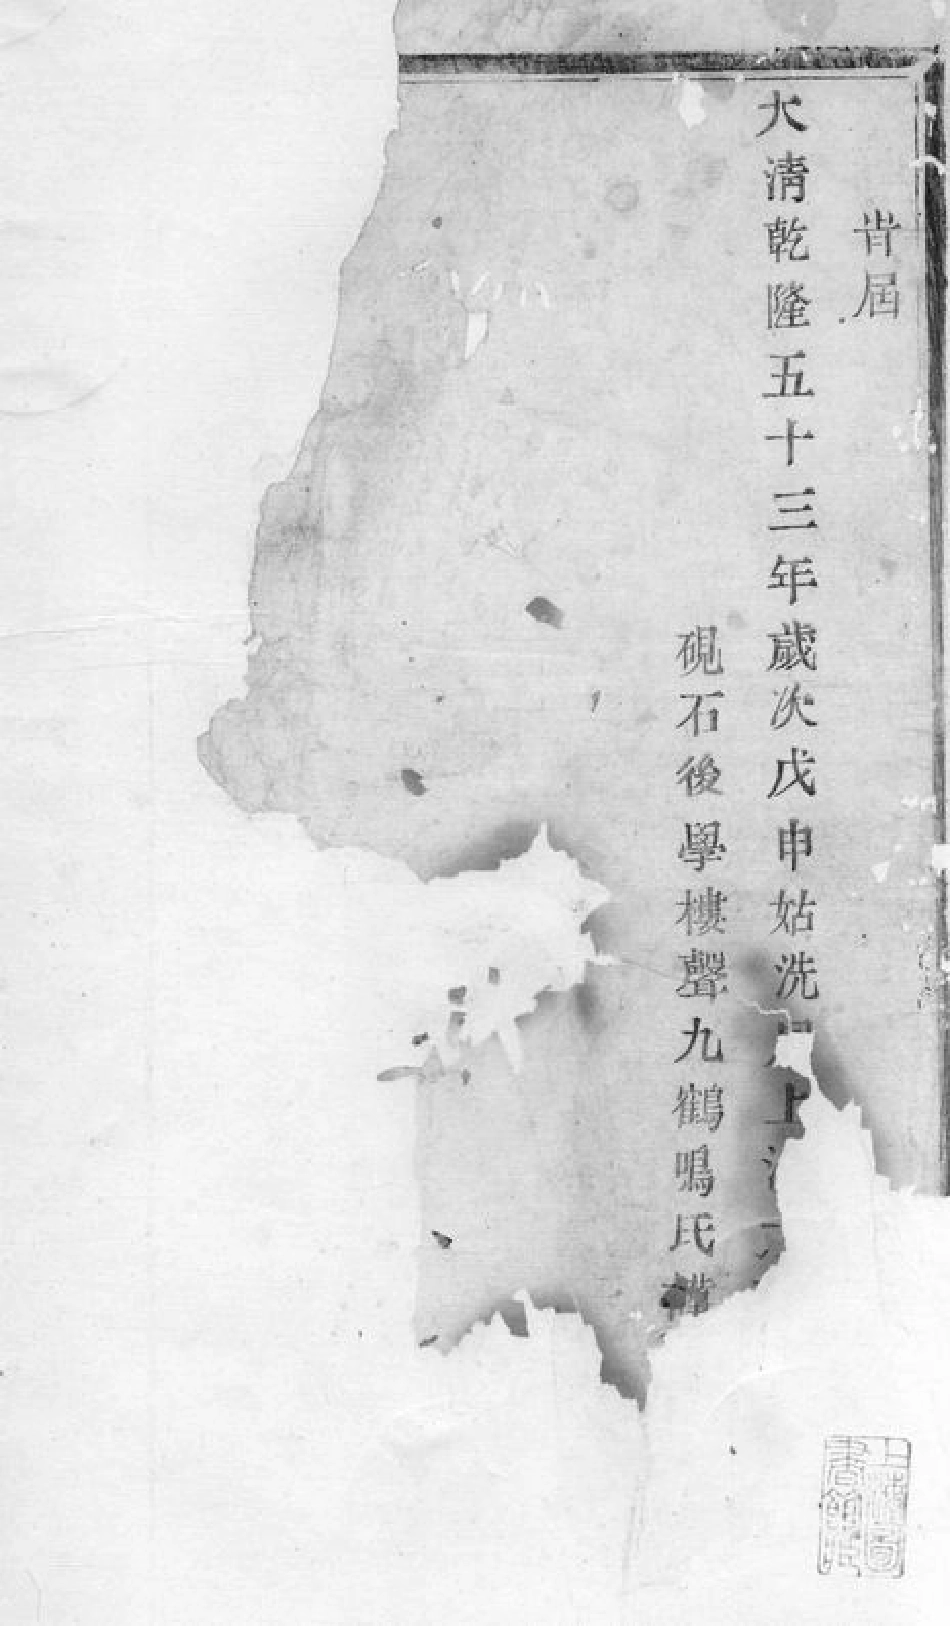 旹屆
大清乾隆五十三年歲次戊申姑洗月上
硯石後學樓聲九鶴鳴氏
上海圖書館藏